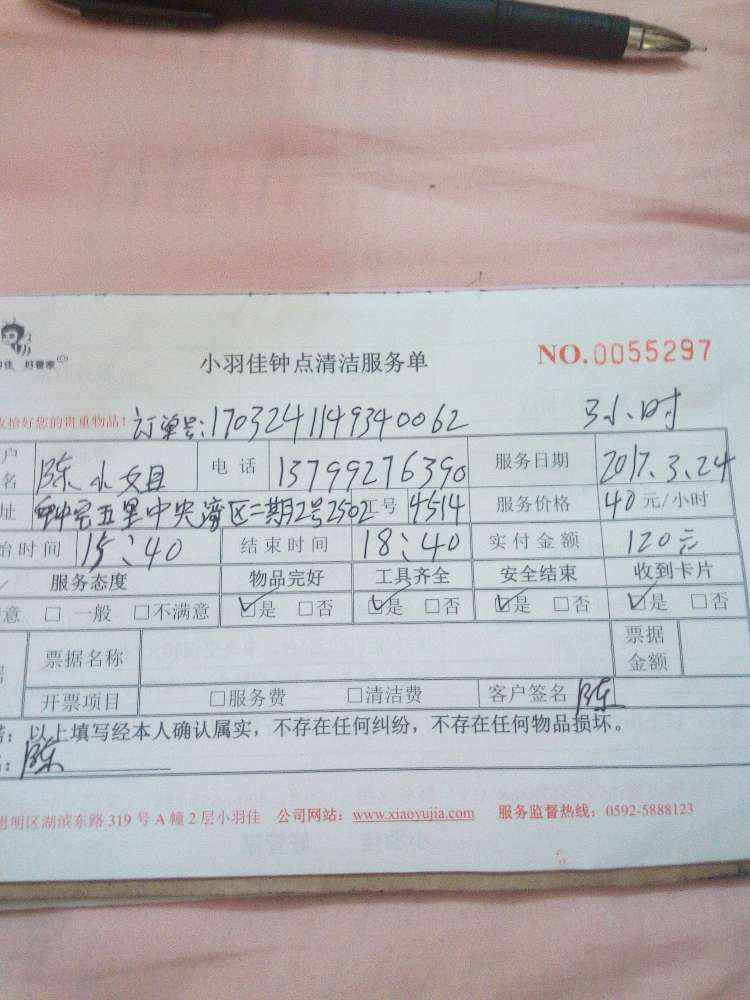 佳 好管家
小羽佳钟点清洁服务单 NO.0055297
收拾好您的贵重物品! 订单号:1703241149340062 3小时
户名 陈小姐 电话 13799276390 服务日期 2017.3.24
址 钟宅五里中央湾区二期2号2502 工号 4514 服务价格 40元/小时
始时间 15:40 结束时间 18:40 实付金额 120元
服务态度 物品完好 工具齐全 安全结束 收到卡片
意 □ 一般 □不满意 ☑是 □否 ☑是 □否 ☑是 □否 ☑是 □否
票据名称 票据金额
开票项目 □服务费 □清洁费 客户签名 陈
:以上填写经本人确认属实,不存在任何纠纷,不存在任何物品损坏。
:陈
思明区湖滨东路 319 号 A 幢 2 层小羽佳 公司网站:www.xiaoyujia.com 服务监督热线:0592-5888123